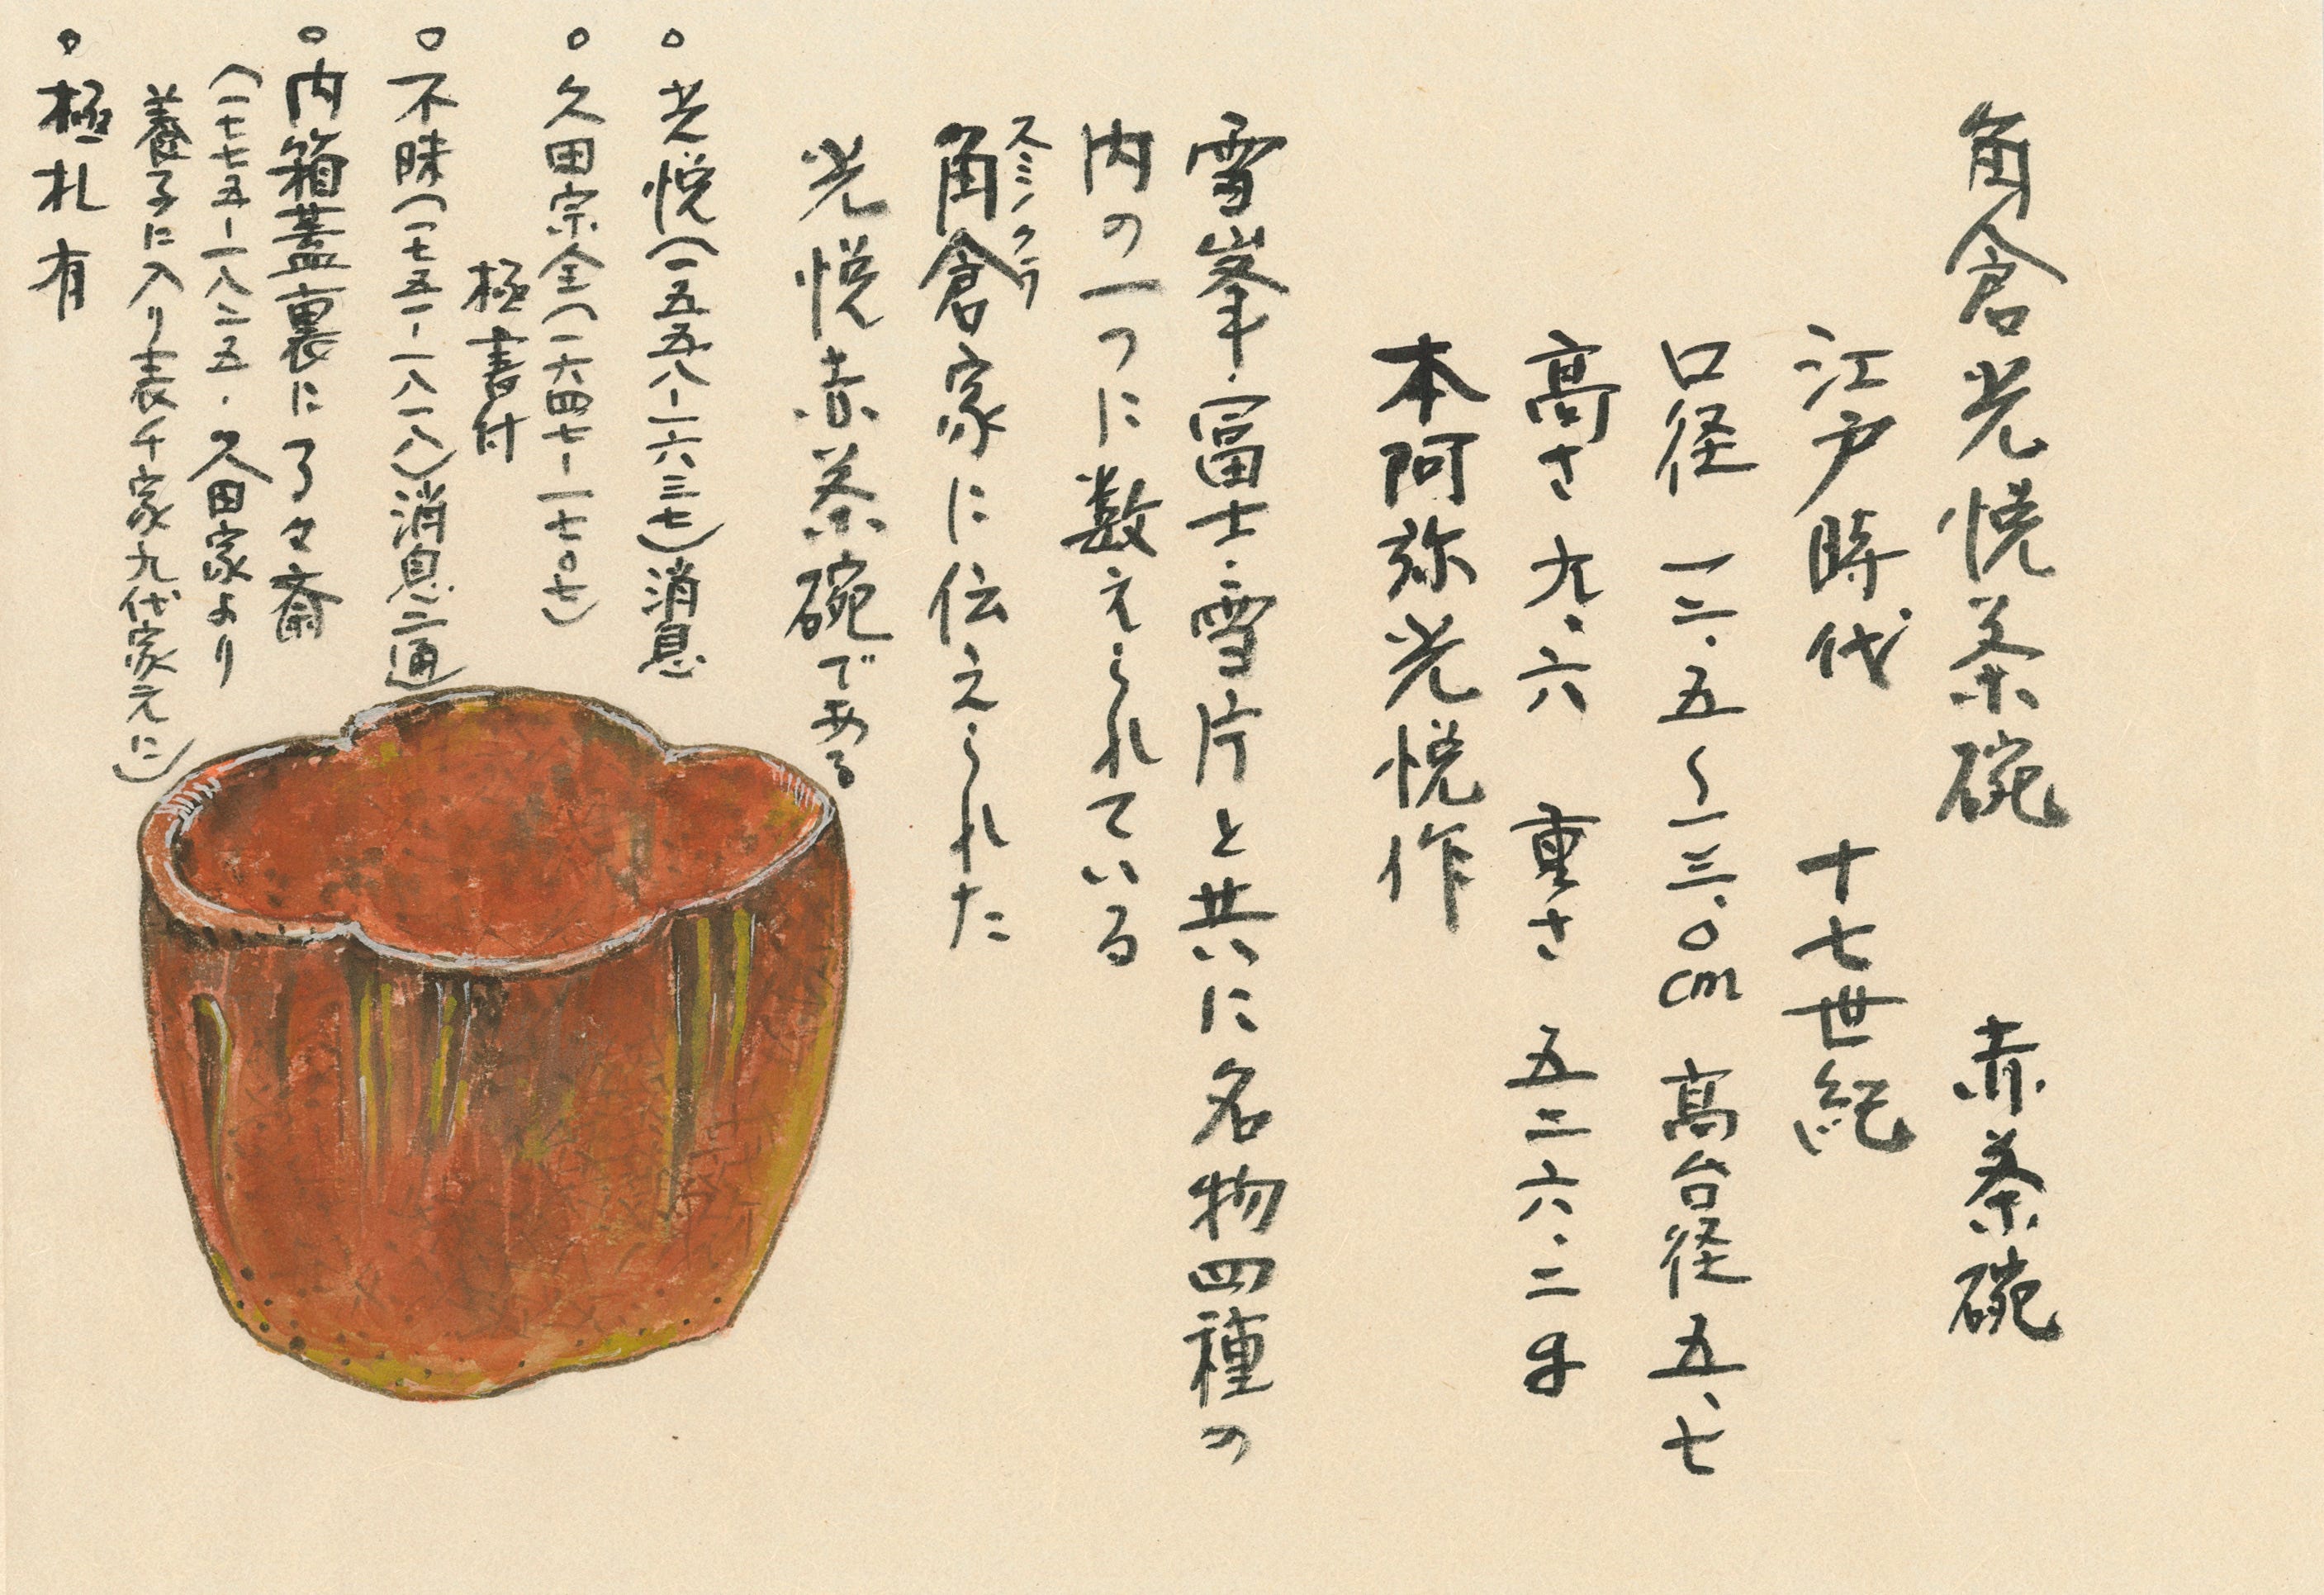 角倉光悦茶碗　赤茶碗
江戸時代　十七世紀
口径 一二.五〜一三.〇cm 高台径 五.七
高さ 九.六　重さ 五二六.二g
本阿弥光悦作
雪峯・富士・雪片と共に名物四種の
内の一つに数えられている
スミノクラ
角倉家に伝えられた
光悦赤茶碗である
○光悦(一五五八-一六三七)消息
○久田宗全(一六四七-一七〇七)
極書付
○不昧(一七五一-一八一八)消息二通
○内箱蓋裏に了々斎
(一七七五-一八二五・久田家より
養子に入り表千家九代家元に)
○極札有